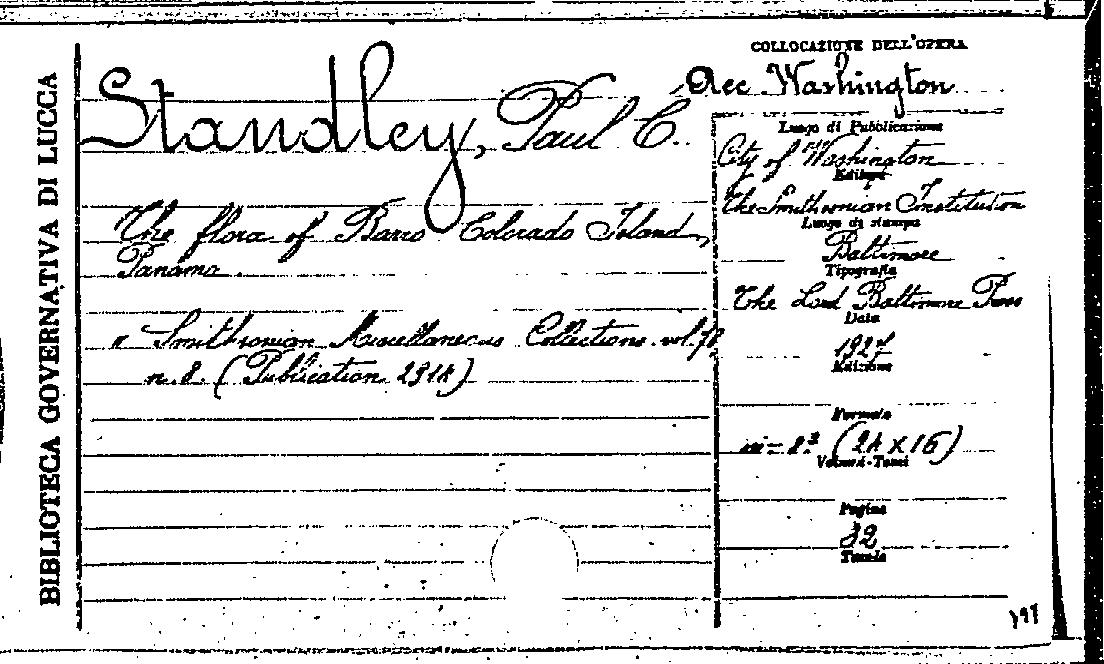 BIBLIOTECA GOVERNATIVA DI LUCCA
Standley, Paul C.
The flora of Barro Colorado Island,
Panama.
" Smithsonian Miscellaneous Collections vol. 78
n. 8. (Publication 2914)
COLLOCAZIONE DELL'OPERA
Acc Washington
Luogo di Pubblicazione
City of Washington
Editore
The Smithsonian Institution
Luogo di stampa
Baltimore
Tipografia
The Lord Baltimore Press
Data
1927
Edizione
Formato
in-8° (24 x 16)
Volumi-Tomi
Pagine
32
Tavole